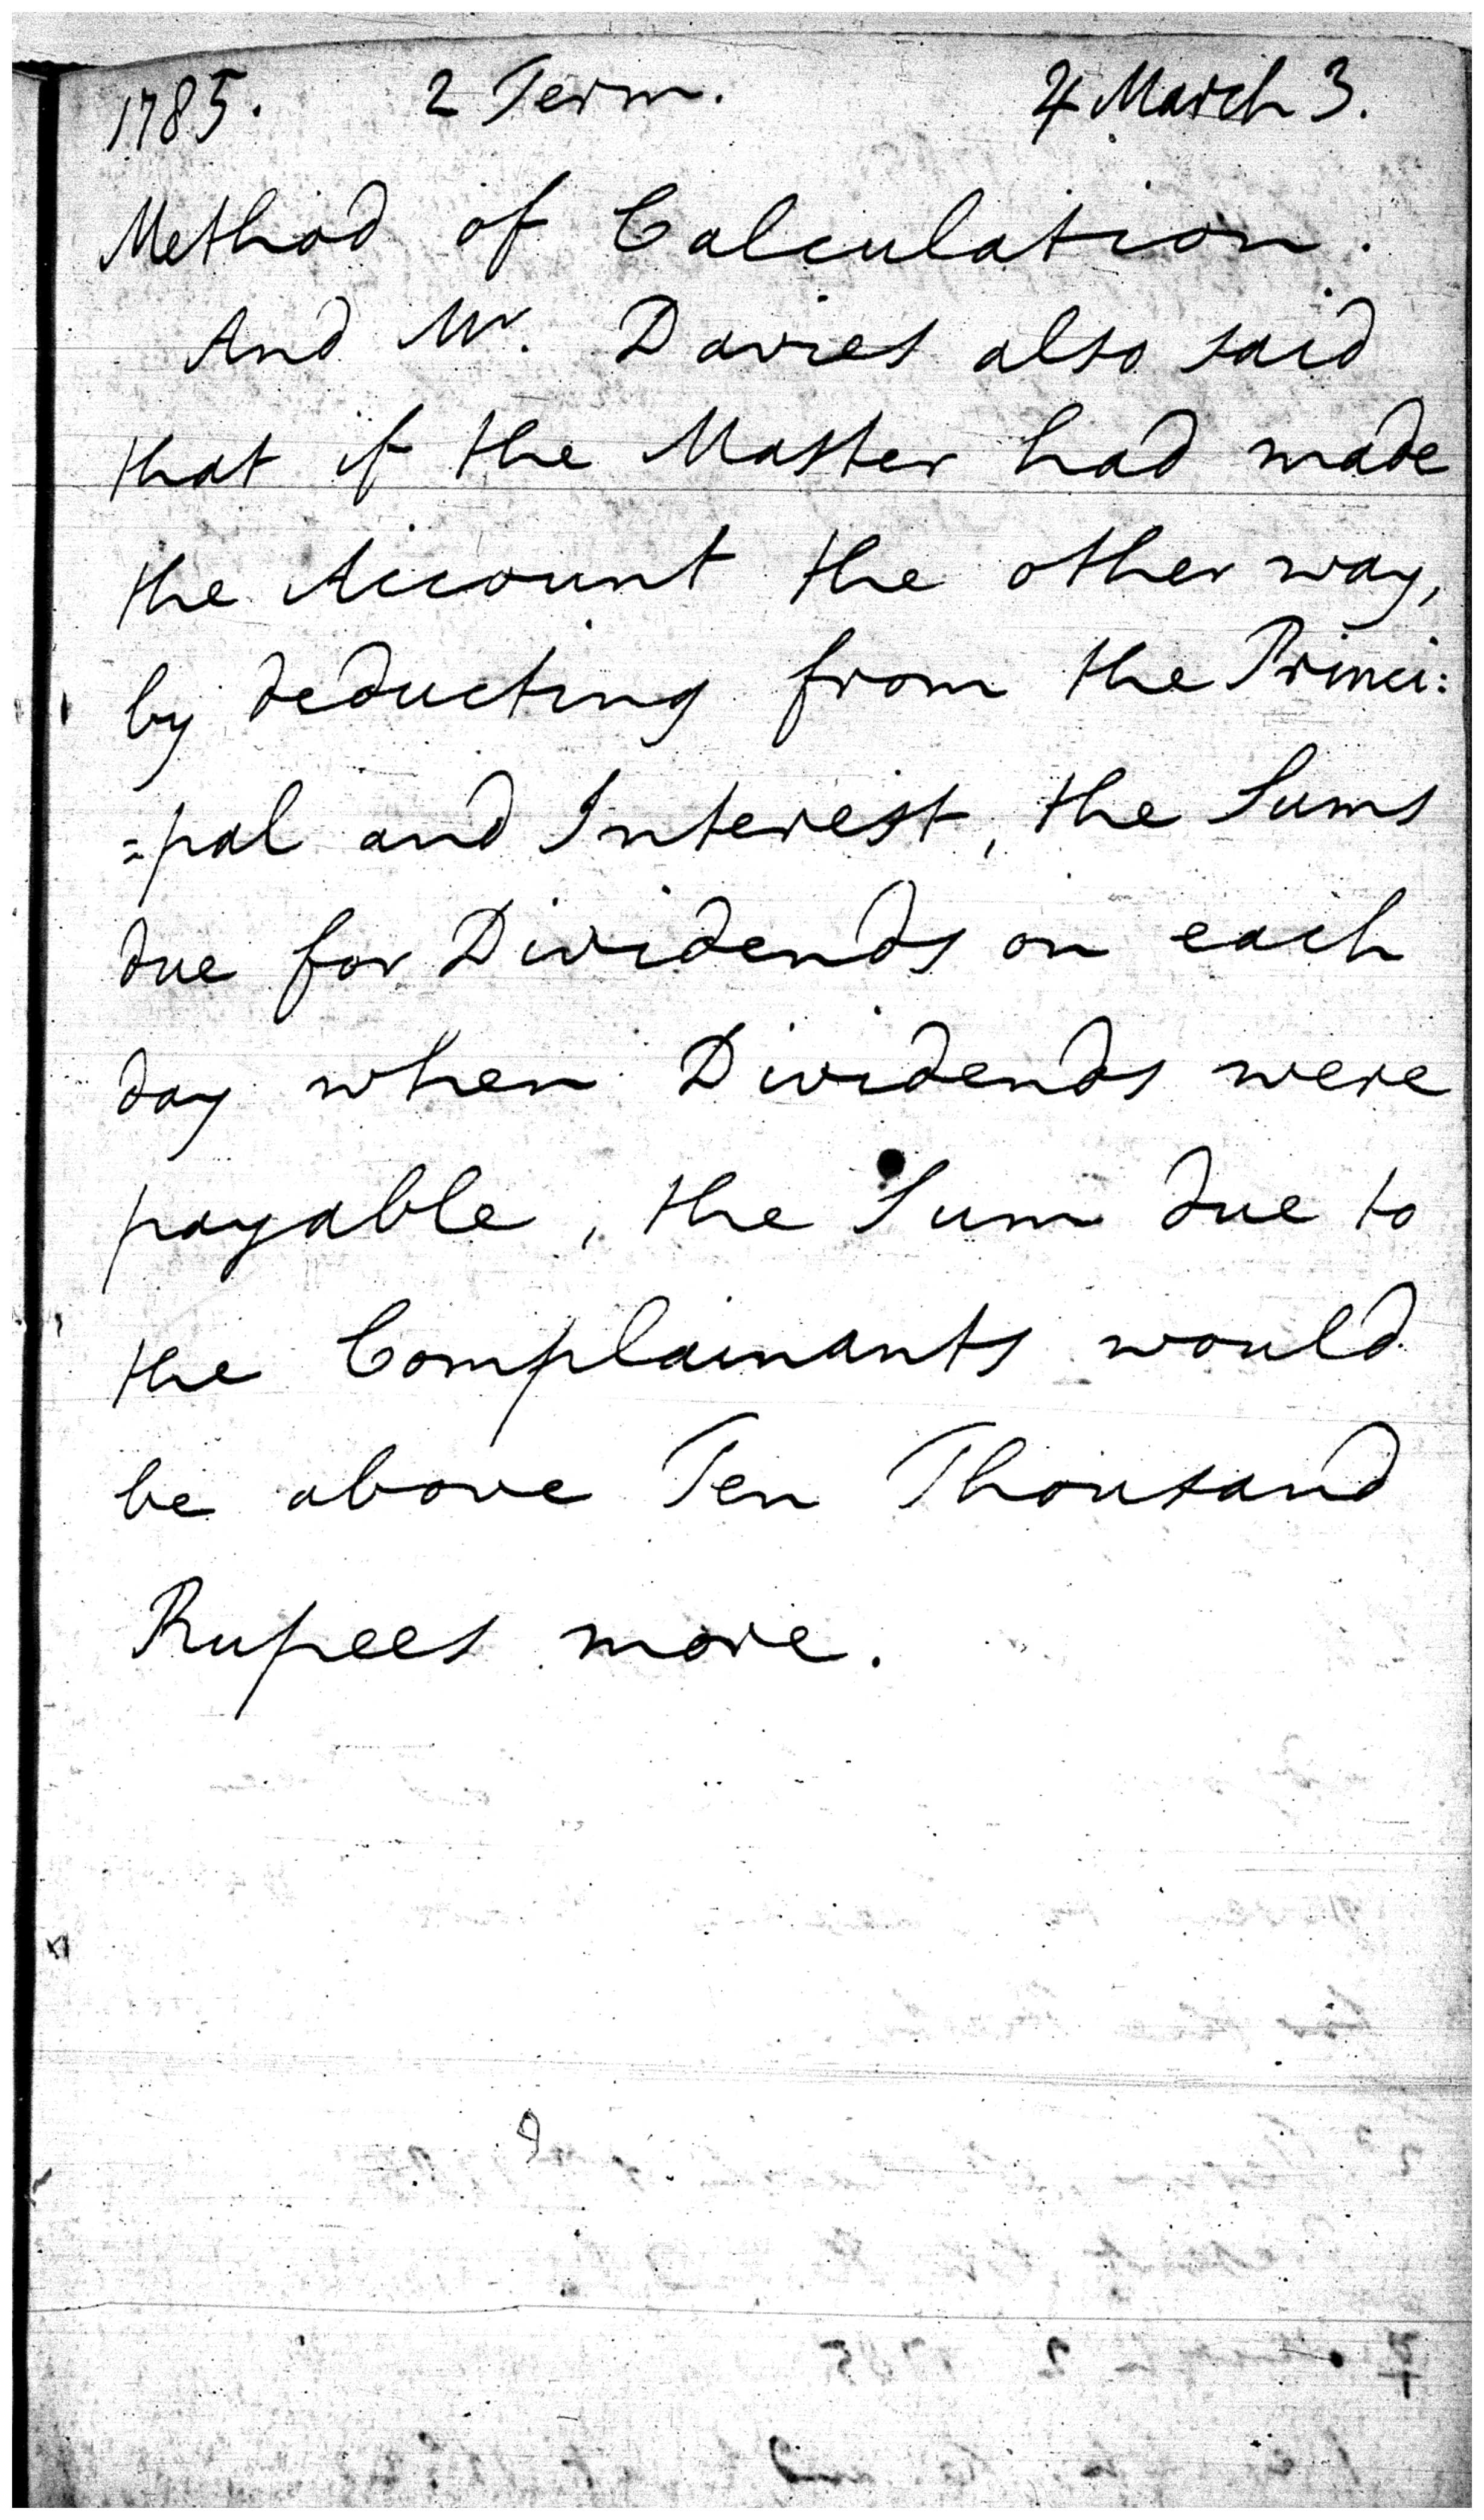 1785. 2 Term. ♃ March 3.
Method of Calculation.
And Mr. Davies also said
that if the Master had made
the Account the other way,
by deducting from the Princi:
=pal and Interest, the Sums
due for Dividends on each
day when Dividends were
payable, the Sum due to
the Complainants would
be above Ten Thousand
Rupees more.